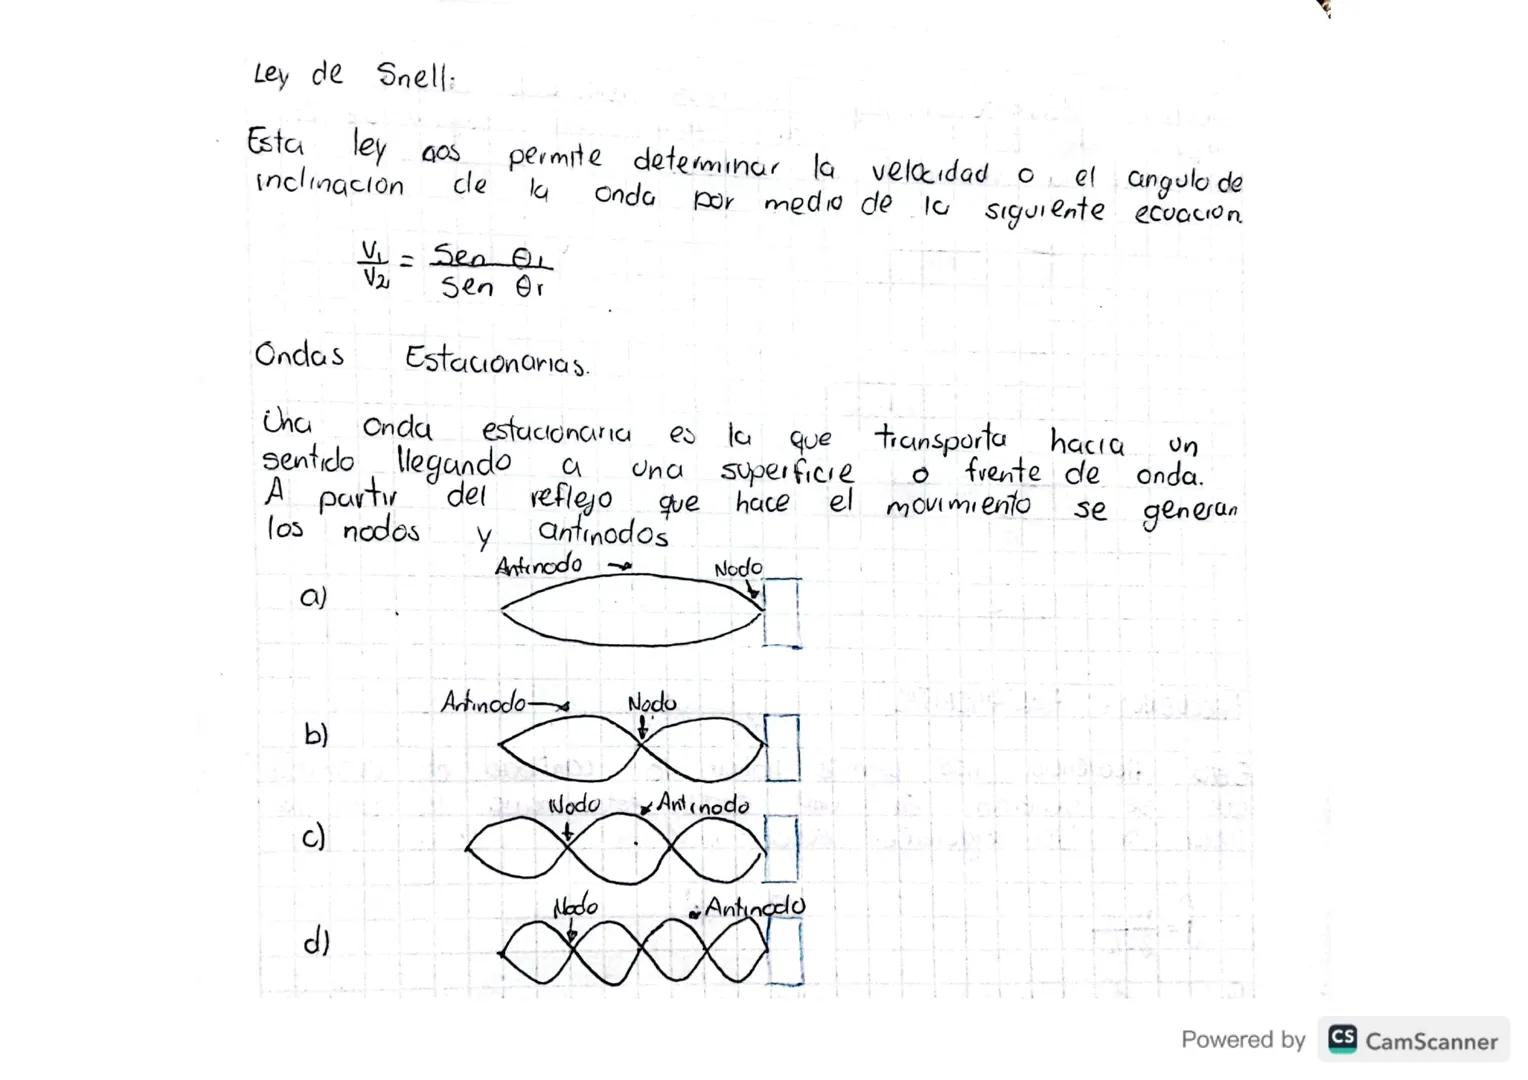 Ley de Snell:
Esta ley nos permite determinar la velocidad o el angulo de
inclinacion de la onda por medio de la siguiente ecuacion
V₁/V₂ = Sen θı/Sen θr
Ondas Estacionarias.
Una onda estacionaria es la que transporta hacia un
sentido llegando a una superficie o frente de onda.
A partir del reflejo que hace el movimiento se generan
los nodos y antinodos
Antinodo → Nodo
a)
Antinodo → Nodo
b)
Nodo Antinodo
c)
Nodo Antinodo
d)
Powered by CS CamScanner